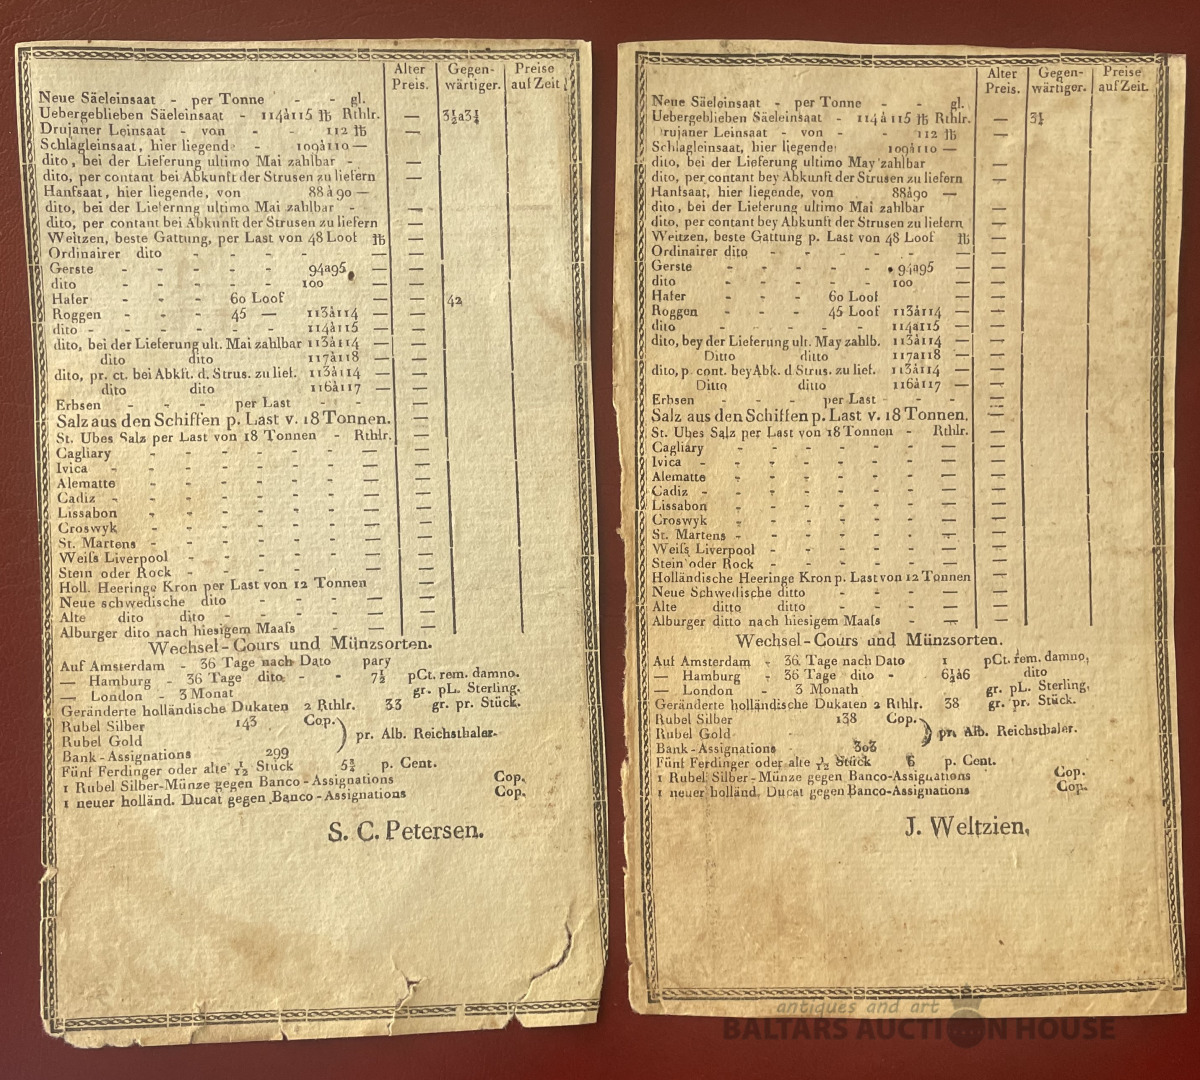 Alter Gegen- Preise
Preis. wärtiger. auf Zeit.
Neue Säeleinsaat - per Tonne - - gl.
Uebergeblieben Säeleinsaat - 114à115 ℔ Rthlr. — 3½a3¼
Drujaner Leinsaat - von - - 112 ℔ —
Schlagleinsaat, hier liegende - 109à110 — —
dito, bei der Lieferung ultimo Mai zahlbar - —
dito, per contant bei Abkunft der Strusen zu liefern —
Hanfsaat, hier liegende, von 88à90 — —
dito, bei der Lieferung ultimo Mai zahlbar - —
dito, per contant bei Abkunft der Strusen zu liefern —
Weitzen, beste Gattung, per Last von 48 Loof ℔ —
Ordinairer dito - - - - — —
Gerste - - - - 94a95 — —
dito - - - - 100 — —
Hafer - - - 60 Loof — — 42
Roggen - - - 45 — 113à114 — —
dito - - - - - 114à115 — —
dito, bei der Lieferung ult. Mai zahlbar 113à114 — —
dito dito 117à118 — —
dito, pr. ct. bei Abkft. d. Strus. zu lief. 113à114 — —
dito dito 116à117 — —
Erbsen - - - per Last - - —
Salz aus den Schiffen p. Last v. 18 Tonnen. —
St. Ubes Salz per Last von 18 Tonnen - Rthlr. —
Cagliary - - - - - - — —
Ivica - - - - - - - — —
Alematte - - - - - - — —
Cadiz - - - - - - - — —
Lissabon - - - - - - — —
Croswyk - - - - - - — —
St. Martens - - - - - - — —
Weiſs Liverpool - - - - - — —
Stein oder Rock - - - - - — —
Holl. Heeringe Kron per Last von 12 Tonnen —
Neue schwedische dito - - - - — —
Alte dito dito - - - - — —
Alburger dito nach hiesigem Maaſs — —
Wechsel-Cours und Münzsorten.
Auf Amsterdam - 36 Tage nach Dato pary
— Hamburg - 36 Tage dito - - 7½ pCt. rem. damno.
— London - 3 Monat gr. pL. Sterling.
Geränderte holländische Dukaten 2 Rthlr. 33 gr. pr. Stück.
Rubel Silber 143 Cop.
Rubel Gold pr. Alb. Reichsthaler.
Bank-Assignations 299
Fünf Ferdinger oder alte 1/12 Stück 5¾ p. Cent.
1 Rubel Silber-Münze gegen Banco-Assignations Cop.
1 neuer holländ. Ducat gegen Banco-Assignations Cop.
S. C. Petersen.
Alter Gegen- Preise
Preis. wärtiger. auf Zeit.
Neue Säeleinsaat - per Tonne - - gl.
Uebergeblieben Säeleinsaat - 114à115 ℔ Rthlr. — 3¼
rujaner Leinsaat - von - - 112 ℔ —
Schlagleinsaat, hier liegende 109à110 — —
dito, bei der Lieferung ultimo May zahlbar —
dito, per contant bey Abkunft der Strusen zu liefern —
Hanfsaat, hier liegende, von 88à90 — —
dito, bei der Lieferung ultimo Mai zahlbar —
dito, per contant bey Abkunft der Strusen zu liefern —
Weitzen, beste Gattung p. Last von 48 Loof ℔ —
Ordinairer dito - - - - — —
Gerste - - - - 94a95 — —
dito - - - - 100 — —
Hafer - - - 60 Loof — —
Roggen - - - 45 Loof 113à114 — —
dito - - - - - 114à115 — —
dito, bey der Lieferung ult. May zahlb. 113à114 — —
Ditto ditto 117a118 — —
dito, p cont. bey Abk. d Strus. zu lief. 113à114 — —
Ditto ditto 116à117 — —
Erbsen - - - per Last - - —
Salz aus den Schiffen p. Last v. 18 Tonnen. —
St. Ubes Salz per Last von 18 Tonnen - Rthlr. —
Cagliary - - - - - - — —
Ivica - - - - - - - — —
Alematte - - - - - - — —
Cadiz - - - - - - - — —
Lissabon - - - - - - — —
Croswyk - - - - - - — —
St. Martens - - - - - - — —
Weiſs Liverpool - - - - - — —
Stein oder Rock - - - - - — —
Holländische Heeringe Kron p. Last von 12 Tonnen —
Neue Schwedische ditto - - - - — —
Alte ditto ditto - - - - — —
Alburger ditto nach hiesigem Maaſs — —
Wechsel-Cours und Münzsorten.
Auf Amsterdam - 36 Tage nach Dato 1 pCt. rem. damno,
— Hamburg - 36 Tage dito - 6½à6 dito
— London - 3 Monath gr. pL. Sterling.
Geränderte holländische Dukaten 2 Rthlr. 38 gr. pr. Stück.
Rubel Silber 138 Cop.
Rubel Gold pr. Alb. Reichsthaler.
Bank-Assignations - 303
Fünf Ferdinger oder alte 1/12 Stück 6 p. Cent.
1 Rubel Silber-Münze gegen Banco-Assignations Cop.
1 neuer holländ. Ducat gegen Banco-Assignations Cop.
J. Weltzien.
antiques and art
BALTARS AUCTION HOUSE